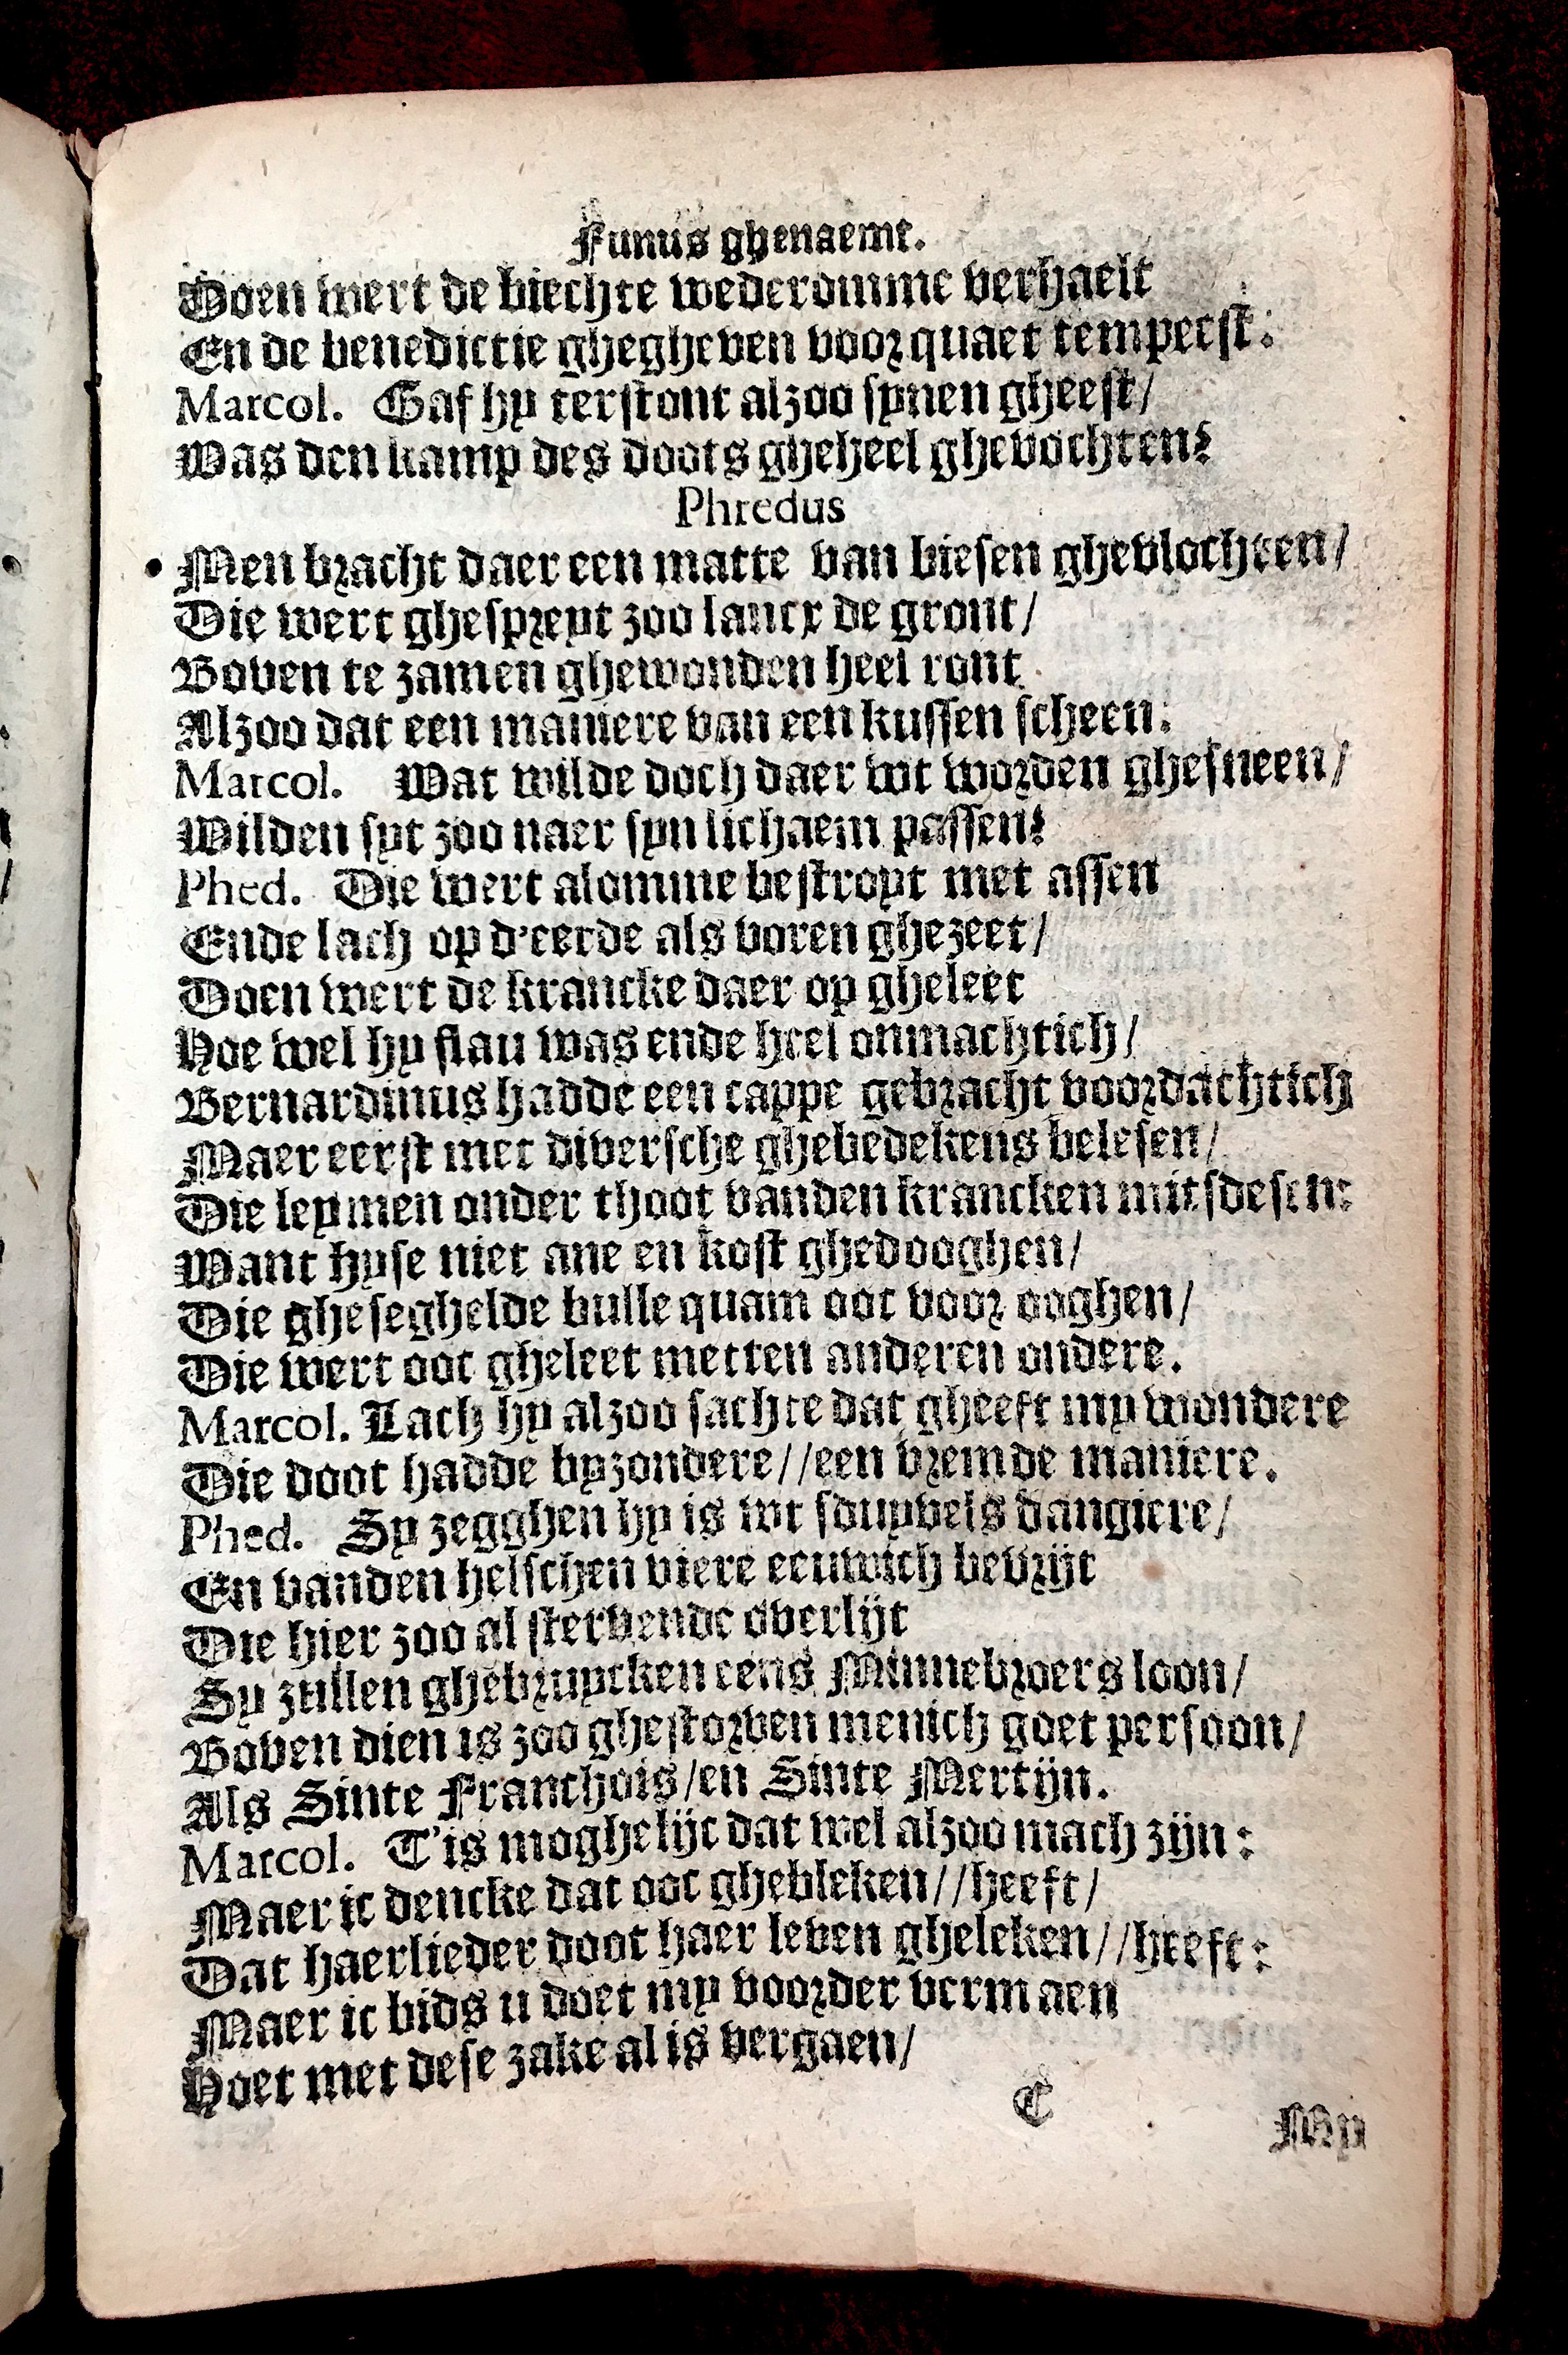 Funus ghenaemt.
Doen wert de biechte wederomme verhaelt
En de benedictie ghegheven voor quaet tempeest:
Marcol. Gaf hy terstont alzoo synen gheest/
Was den kamp des doots gheheel ghevochten?
Phredus
Men bracht daer een matte van biesen ghevlochten/
Die wert ghespreyt zoo lancx de gront/
Boven te zamen ghewonden heel ront
Alzoo dat een maniere van een kussen scheen:
Marcol. Wat wilde doch daer wt worden ghesneen/
Wilden syt zoo naer syn lichaem passen?
Phed. Die wert alomme bestroyt met assen
Ende lach op d'eerde als voren ghezeet/
Doen wert de krancke daer op gheleet
Hoe wel hy flau was ende heel onmachtich/
Bernardinus hadde een cappe gebracht voordachtich
Maer eerst met diversche ghebedekens belesen/
Die leymen onder thoot vanden krancken mitsdesen:
Want hyse niet ane en kost ghedooghen/
Die gheseghelde bulle quam ooc voor ooghen/
Die wert ooc gheleet metten anderen ondere.
Marcol. Lach hy alzoo sachte dat gheeft my wondere
Die doot hadde byzondere//een vremde maniere.
Phed. Sy zegghen hy is wt sduyvels dangiere/
En vanden helschen viere eeuwich bevrijt
Die hier zoo al stervende overlijt
Sy zullen ghebruycken eens Minnebroers loon/
Boven dien is zoo ghestorven menich goet persoon/
Als Sinte Franchois/en Sinte Mertijn.
Marcol. T'is moghelijc dat wel alzoo mach zijn:
Maer ic dencke dat ooc ghebleken//heeft/
Dat haerlieder doot haer leven gheleken//heeft:
Maer ic bids u doet my voorder vermaen
Hoet met dese zake al is vergaen/
C
My